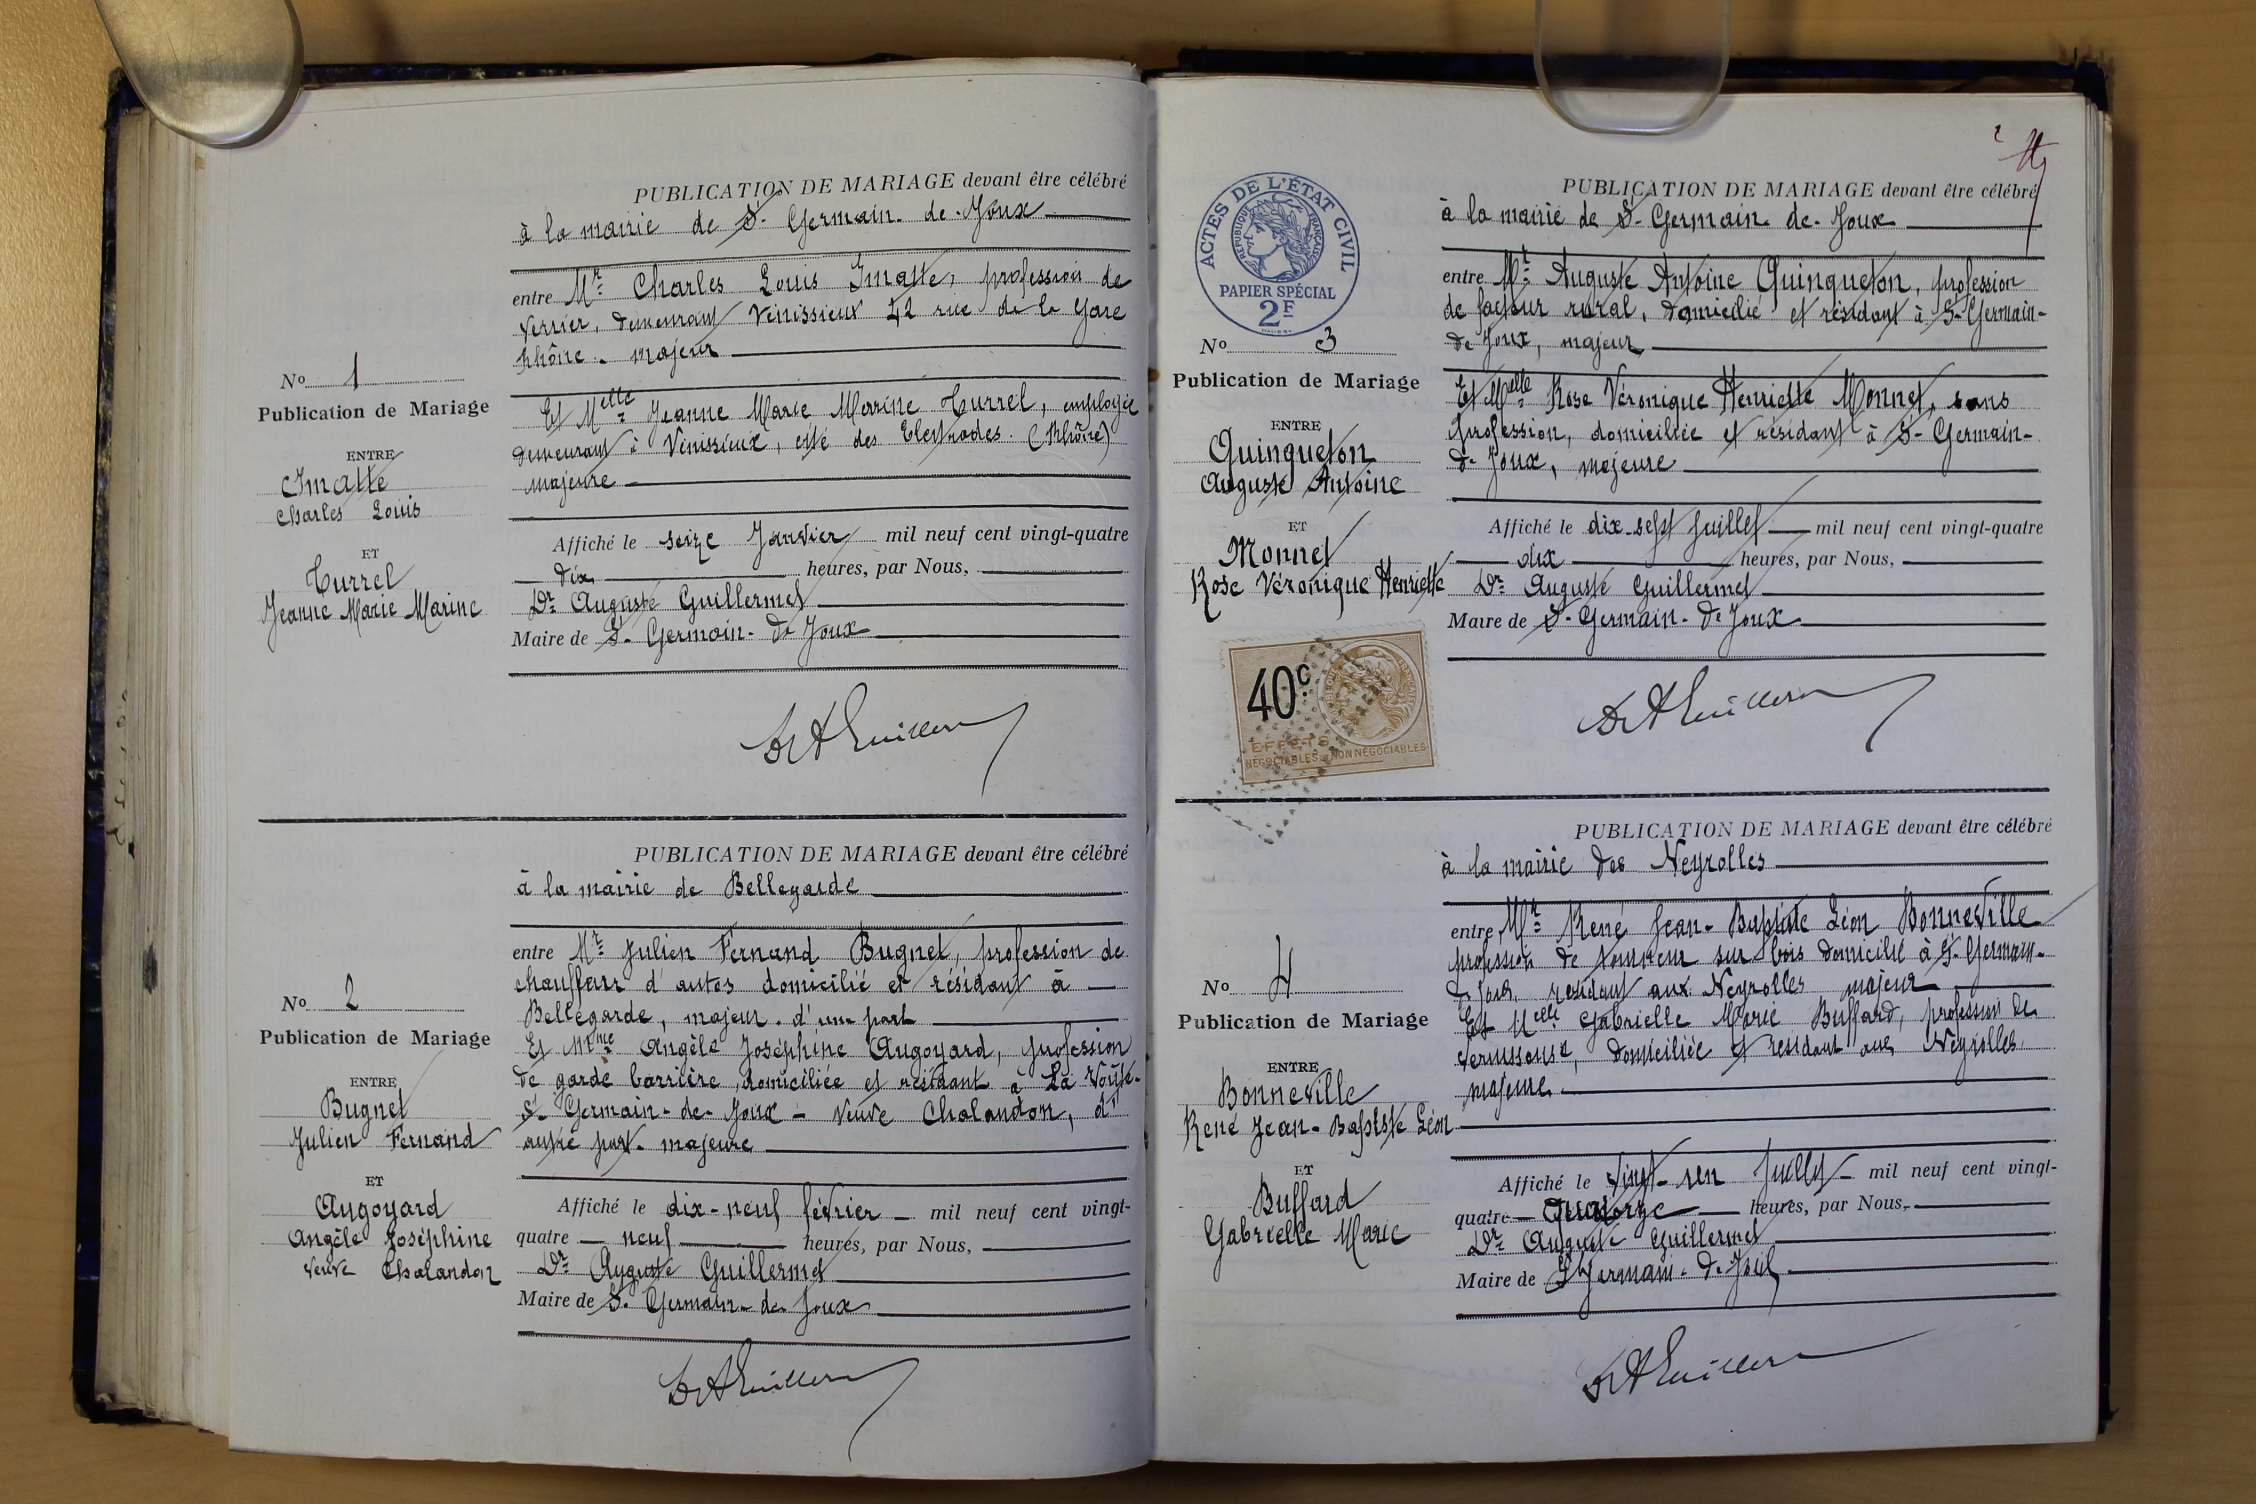 PUBLICATION DE MARIAGE devant être célébré
à la mairie de St- Germain- de- Joux
N° 1
Publication de Mariage
ENTRE
Imatte
Charles Louis
ET
Turrel
Jeanne Marie Marine
entre Mr Charles Louis Imatte, profession de
verrier, demeurant Vénissieux 42 rue de la Gare
Rhône - majeur
Et Melle Jeanne Marie Marine Turrel, employée
demeurant à Vénissieux, cité des Electrodes. (Rhône)
majeure
Affiché le seize Janvier mil neuf cent vingt-quatre
dix heures, par Nous,
Dr Auguste Guillermet
Maire de St- Germain- de Joux
Dr A Guillerm
PUBLICATION DE MARIAGE devant être célébré
à la mairie de Bellegarde
N° 2
Publication de Mariage
ENTRE
Bugnet
Julien Fernand
ET
Augoyard
Angèle Joséphine
veuve Chalandon
entre Mr Julien Fernand Bugnet, profession de
chauffeur d'autos domicilié et résidant à
Bellegarde, majeur. d'une part
Et Mme Angèle Joséphine Augoyard, profession
de garde barrière, domiciliée et résidant à La Voûte-
St Germain-de-Joux - Veuve Chalandon, d'
autre part- majeure
Affiché le dix-neuf février mil neuf cent vingt-
quatre neuf heures, par Nous,
Dr Auguste Guillermet
Maire de St- Germain- de- Joux
Dr A Guillerm
ACTES DE L'ÉTAT CIVIL
RÉPUBLIQUE FRANÇAISE
PAPIER SPÉCIAL
2F
PUBLICATION DE MARIAGE devant être célébré
à la mairie de St- Germain- de- Joux
N° 3
Publication de Mariage
ENTRE
Quinqueton
Auguste Antoine
ET
Monnet
Rose Véronique Henriette
entre Mr Auguste Antoine Quinqueton, profession
de facteur rural, domicilié et résidant à St- Germain-
de Joux, majeur
Et Melle Rose Véronique Henriette Monnet, sans
profession, domiciliée et résidant à St- Germain-
de Joux, majeure
Affiché le dix-sept Juillet mil neuf cent vingt-quatre
dix heures, par Nous,
Dr Auguste Guillermet
Maire de St- Germain- de Joux
40c
EFFETS
NÉGOCIABLES ET NON NÉGOCIABLES
Dr A Guillerm
PUBLICATION DE MARIAGE devant être célébré
à la mairie des Neyrolles
N° 4
Publication de Mariage
ENTRE
Bonneville
René Jean- Baptiste Léon
ET
Buffard
Gabrielle Marie
entre Mr René Jean- Baptiste Léon Bonneville
profession de tourneur sur bois domicilié à St- Germain-
de Joux, résidant aux Neyrolles majeur
Et Melle Gabrielle Marie Buffard, profession de
vernisseuse, domiciliée et résidant aux Neyrolles
majeure
Affiché le vingt-un Juillet mil neuf cent vingt-
quatre quatorze heures, par Nous,
Dr Auguste Guillermet
Maire de St Germain- de Joux
Dr A Guillerm